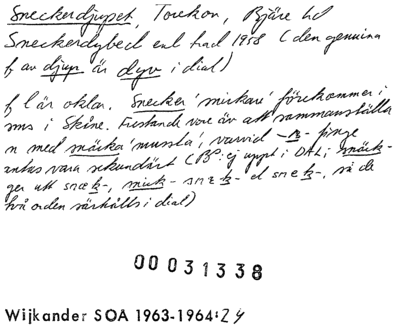 Sneckerdjupet, Torekov, Bjäre hd
Sneckerdybed enl had 1958 (den genuina
f av djup är dyv i dial)
fl är oklar. Snecker 'snickare' förekommer i
sms i Skåne. Frestande vore är att sammanställa
n med snäcka 'mussla', varvid -r- finge
antas vara sekundärt (   : ej uppt i DAL; snäck-
ger utt snæk-,  - snæk- el snek-, så de
två orden särhålls i dial)
00031338
Wijkander SOA 1963-1964:24